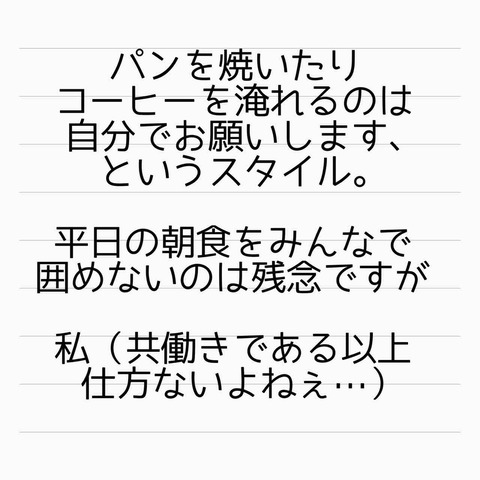 パンを焼いたり
コーヒーを淹れるのは
自分でお願いします、
というスタイル。
平日の朝食をみんなで
囲めないのは残念ですが
私（共働きである以上
仕方ないよねぇ…）